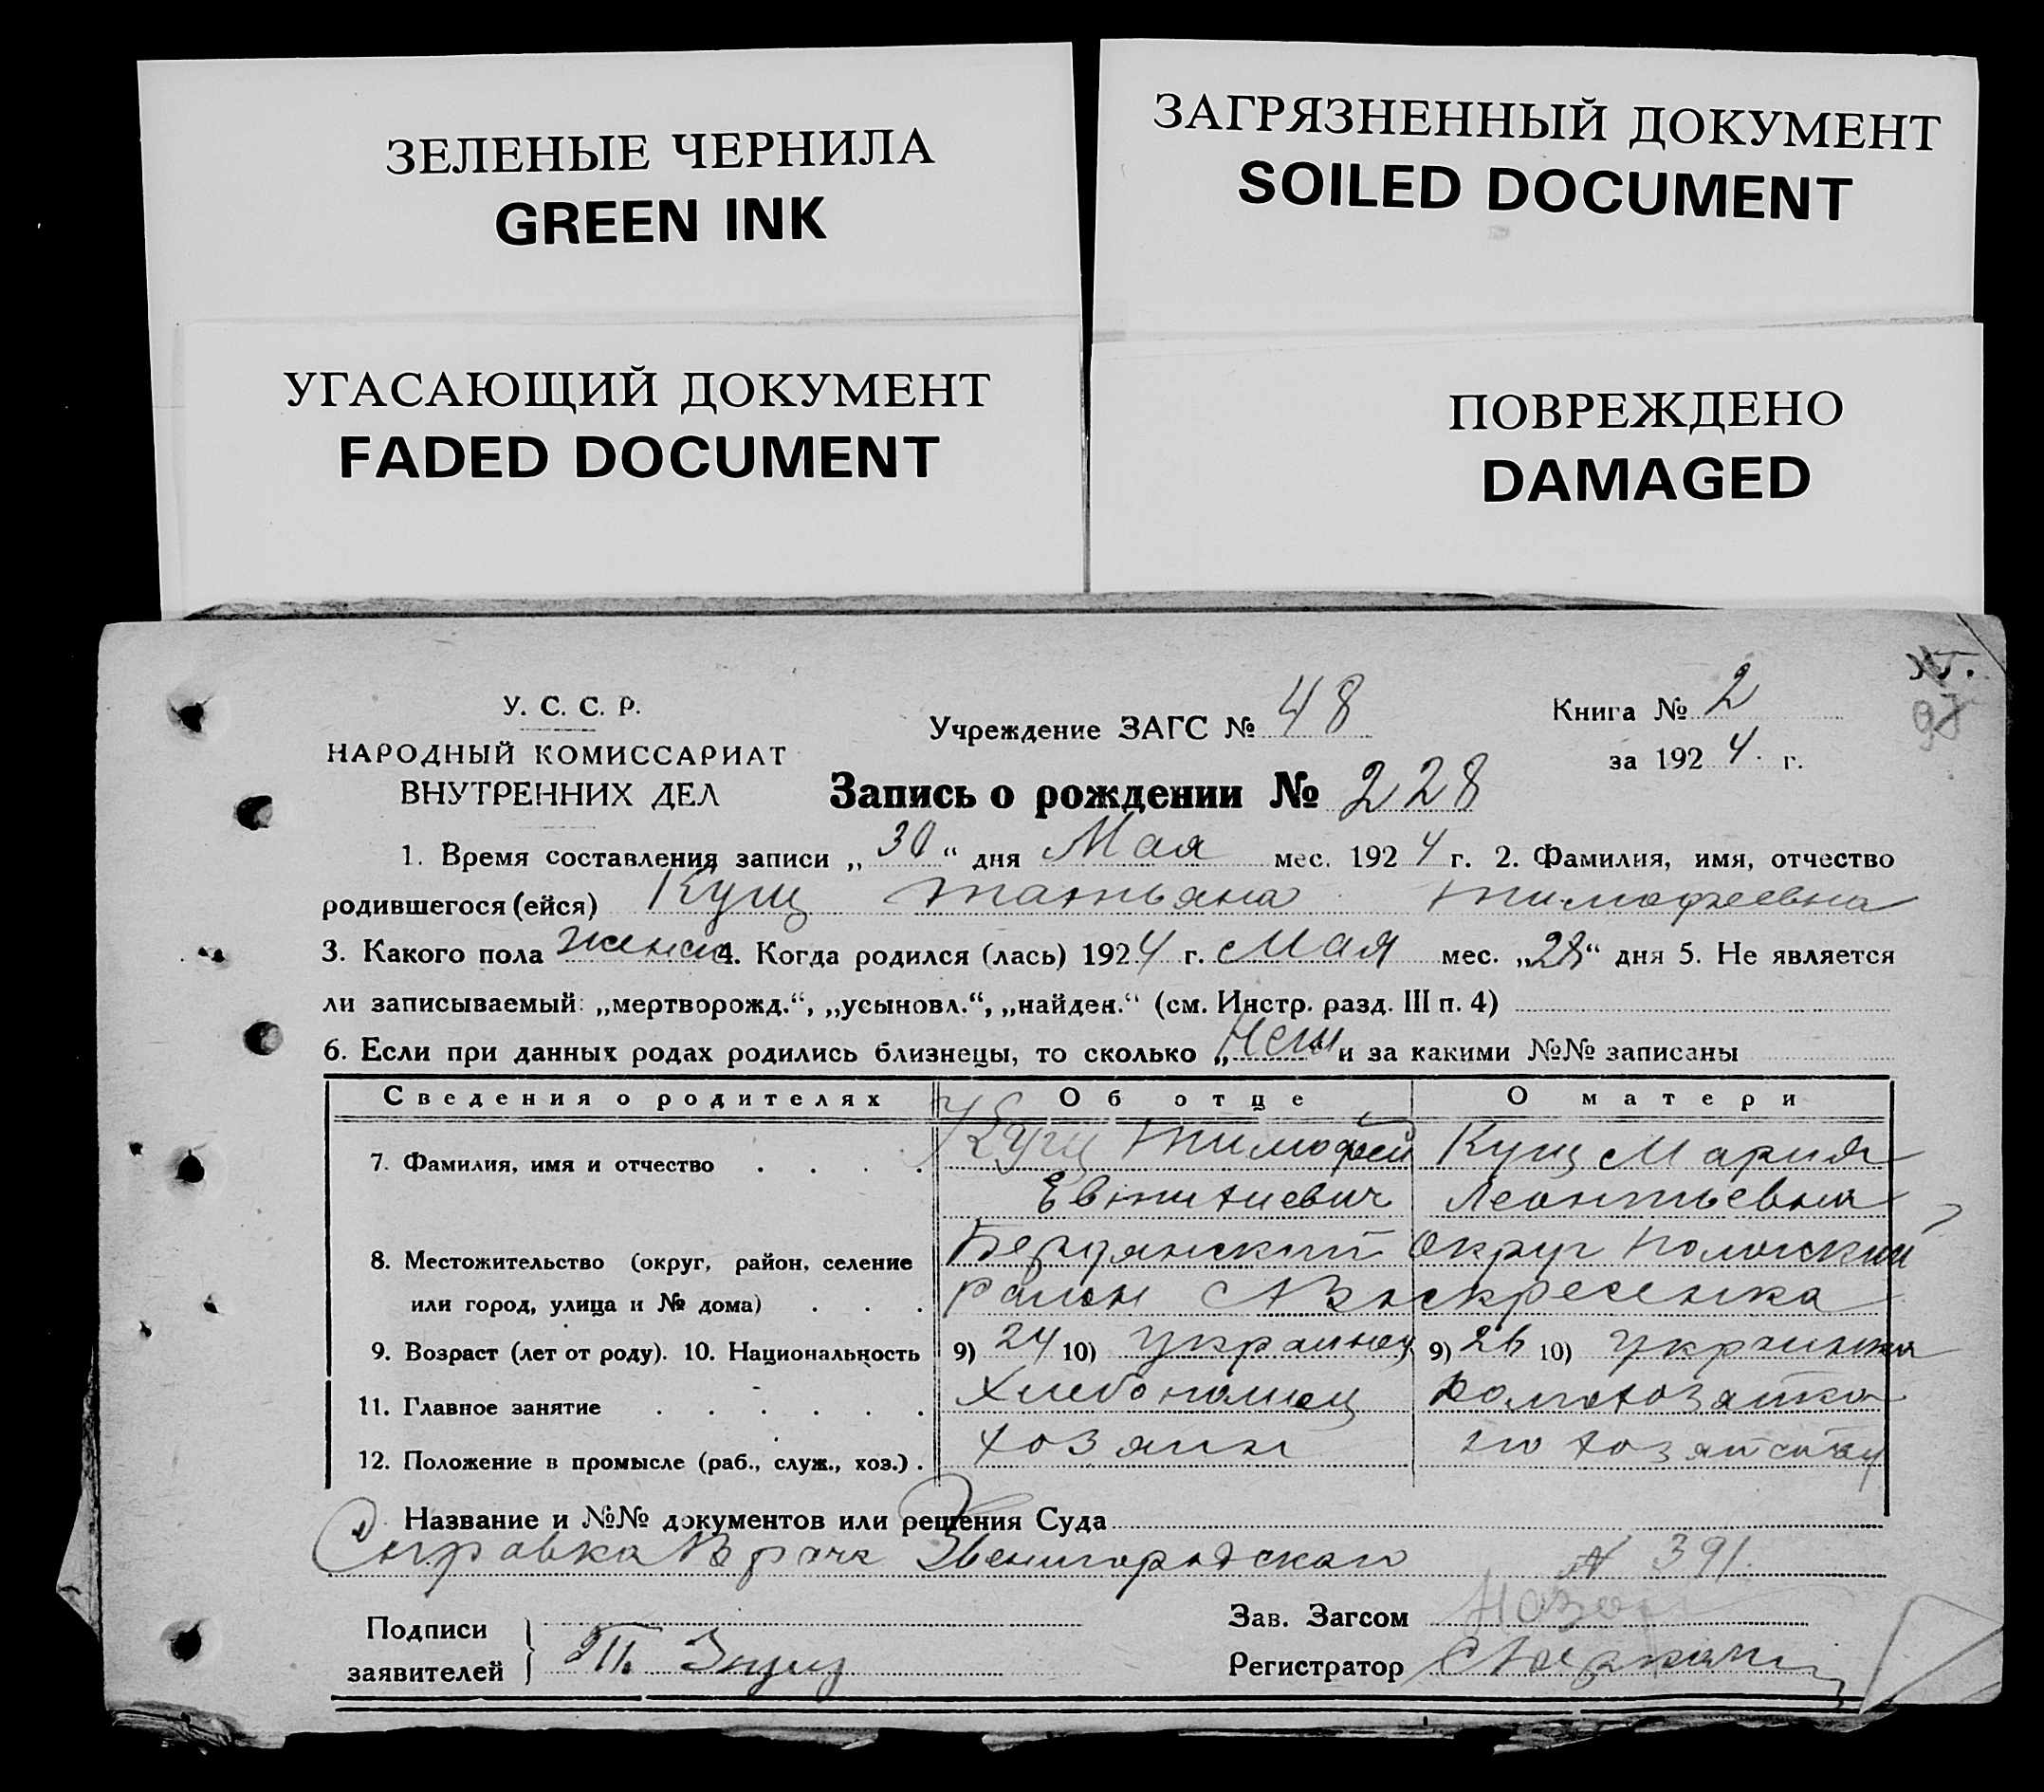 ЗЕЛЕНЫЕ ЧЕРНИЛА
GREEN INK
ЗАГРЯЗНЕННЫЙ ДОКУМЕНТ
SOILED DOCUMENT
УГАСАЮЩИЙ ДОКУМЕНТ
FADED DOCUMENT
ПОВРЕЖДЕНО
DAMAGED
У. С. С. Р.
НАРОДНЫЙ КОМИССАРИАТ
ВНУТРЕННИХ ДЕЛ
Учреждение ЗАГС № 48
Книга № 2
за 1924 г.
Запись о рождении № 228
1. Время составления записи „30“ дня Мая мес. 1924 г. 2. Фамилия, имя, отчество
родившегося (ейся) Кущ Татьяна Тимофеевна
3. Какого пола женск 4. Когда родился (лась) 1924 г. Мая мес. „28“ дня 5. Не является
ли записываемый: „мертворожд.“, „усыновл.“, „найден.“ (см. Инстр. разд. III п. 4)
6. Если при данных родах родились близнецы, то сколько „нет“ и за какими №№ записаны
Сведения о родителях Об отце О матери
7. Фамилия, имя и отчество Кущ Тимофей Кущ Мария
Евтихиевич Леонтьевна
8. Местожительство (округ, район, селение Бердянский округ Пологский
или город, улица и № дома) район с Воскресенка
9. Возраст (лет от роду). 10. Национальность 9) 24 10) украинец 9) 26 10) украинка
11. Главное занятие Хлебопашец Домохозяйка
12. Положение в промысле (раб., служ., хоз.) хозяин по хозяйству
Название и №№ документов или решения Суда
Справка Врача Звенигородскаго № 391.
Подписи
заявителей
Т.
Зав. Загсом
Регистратор